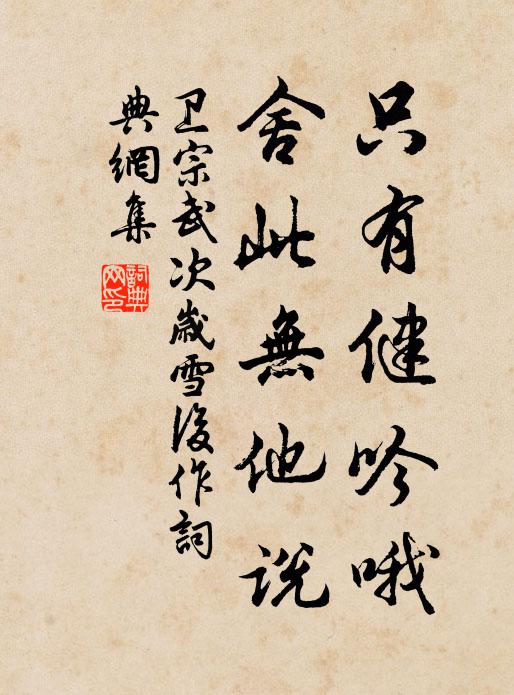 只有健吟哦
舍此無他说
卫宗武次歲雪後作詞
典網集
詞典网印